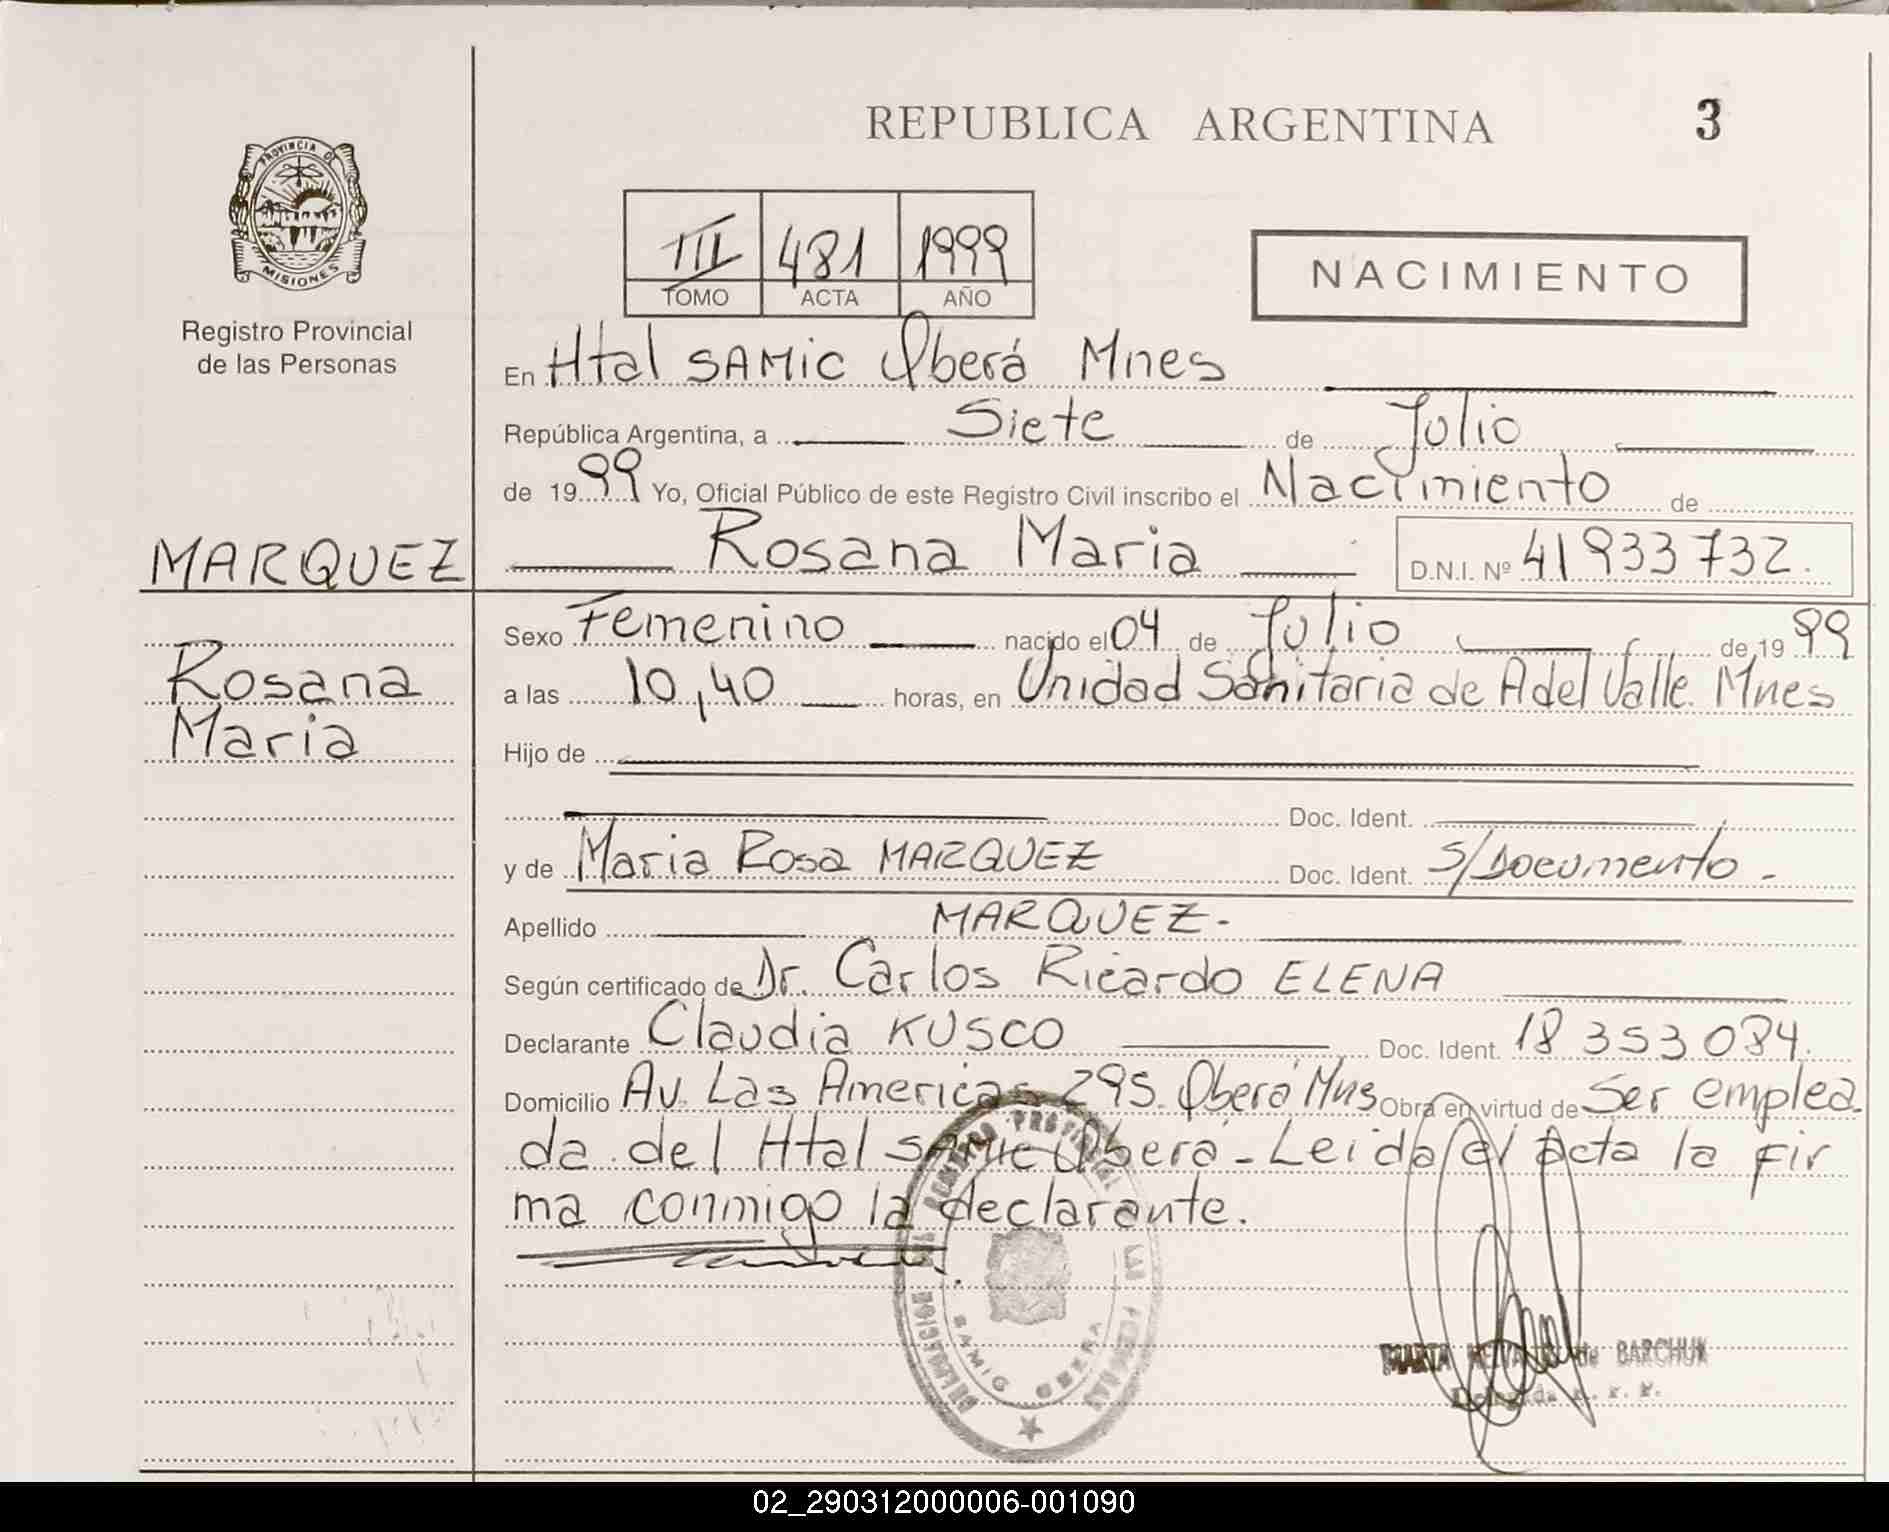 REPUBLICA ARGENTINA
3
PROVINCIA DE
MISIONES
Registro Provincial
de las Personas
III 481 1999
TOMO ACTA AÑO
NACIMIENTO
En Htal SAMIC Oberá Mnes
República Argentina, a Siete de Julio
de 1999 Yo, Oficial Público de este Registro Civil inscribo el Nacimiento de
MARQUEZ
Rosana Maria D.N.I. Nº 41933732.
Sexo Femenino nacido el 04 de Julio de 1999
Rosana
Maria
a las 10,40 horas, en Unidad Sanitaria de A del Valle Mnes
Hijo de
Doc. Ident.
y de Maria Rosa MARQUEZ Doc. Ident. S/Documento.-
Apellido MARQUEZ.-
Según certificado de Dr. Carlos Ricardo ELENA
Declarante Claudia KUSCO Doc. Ident. 18353084.
Domicilio Av. Las Americas 295. Oberá Mns Obra en virtud de Ser emplea
da del Htal SAMIC Oberá - Leida el Acta la fir
ma conmigo la declarante.
SAMIC OBERA
MARTA de BARCHUK
Delegada
02_290312000006-001090